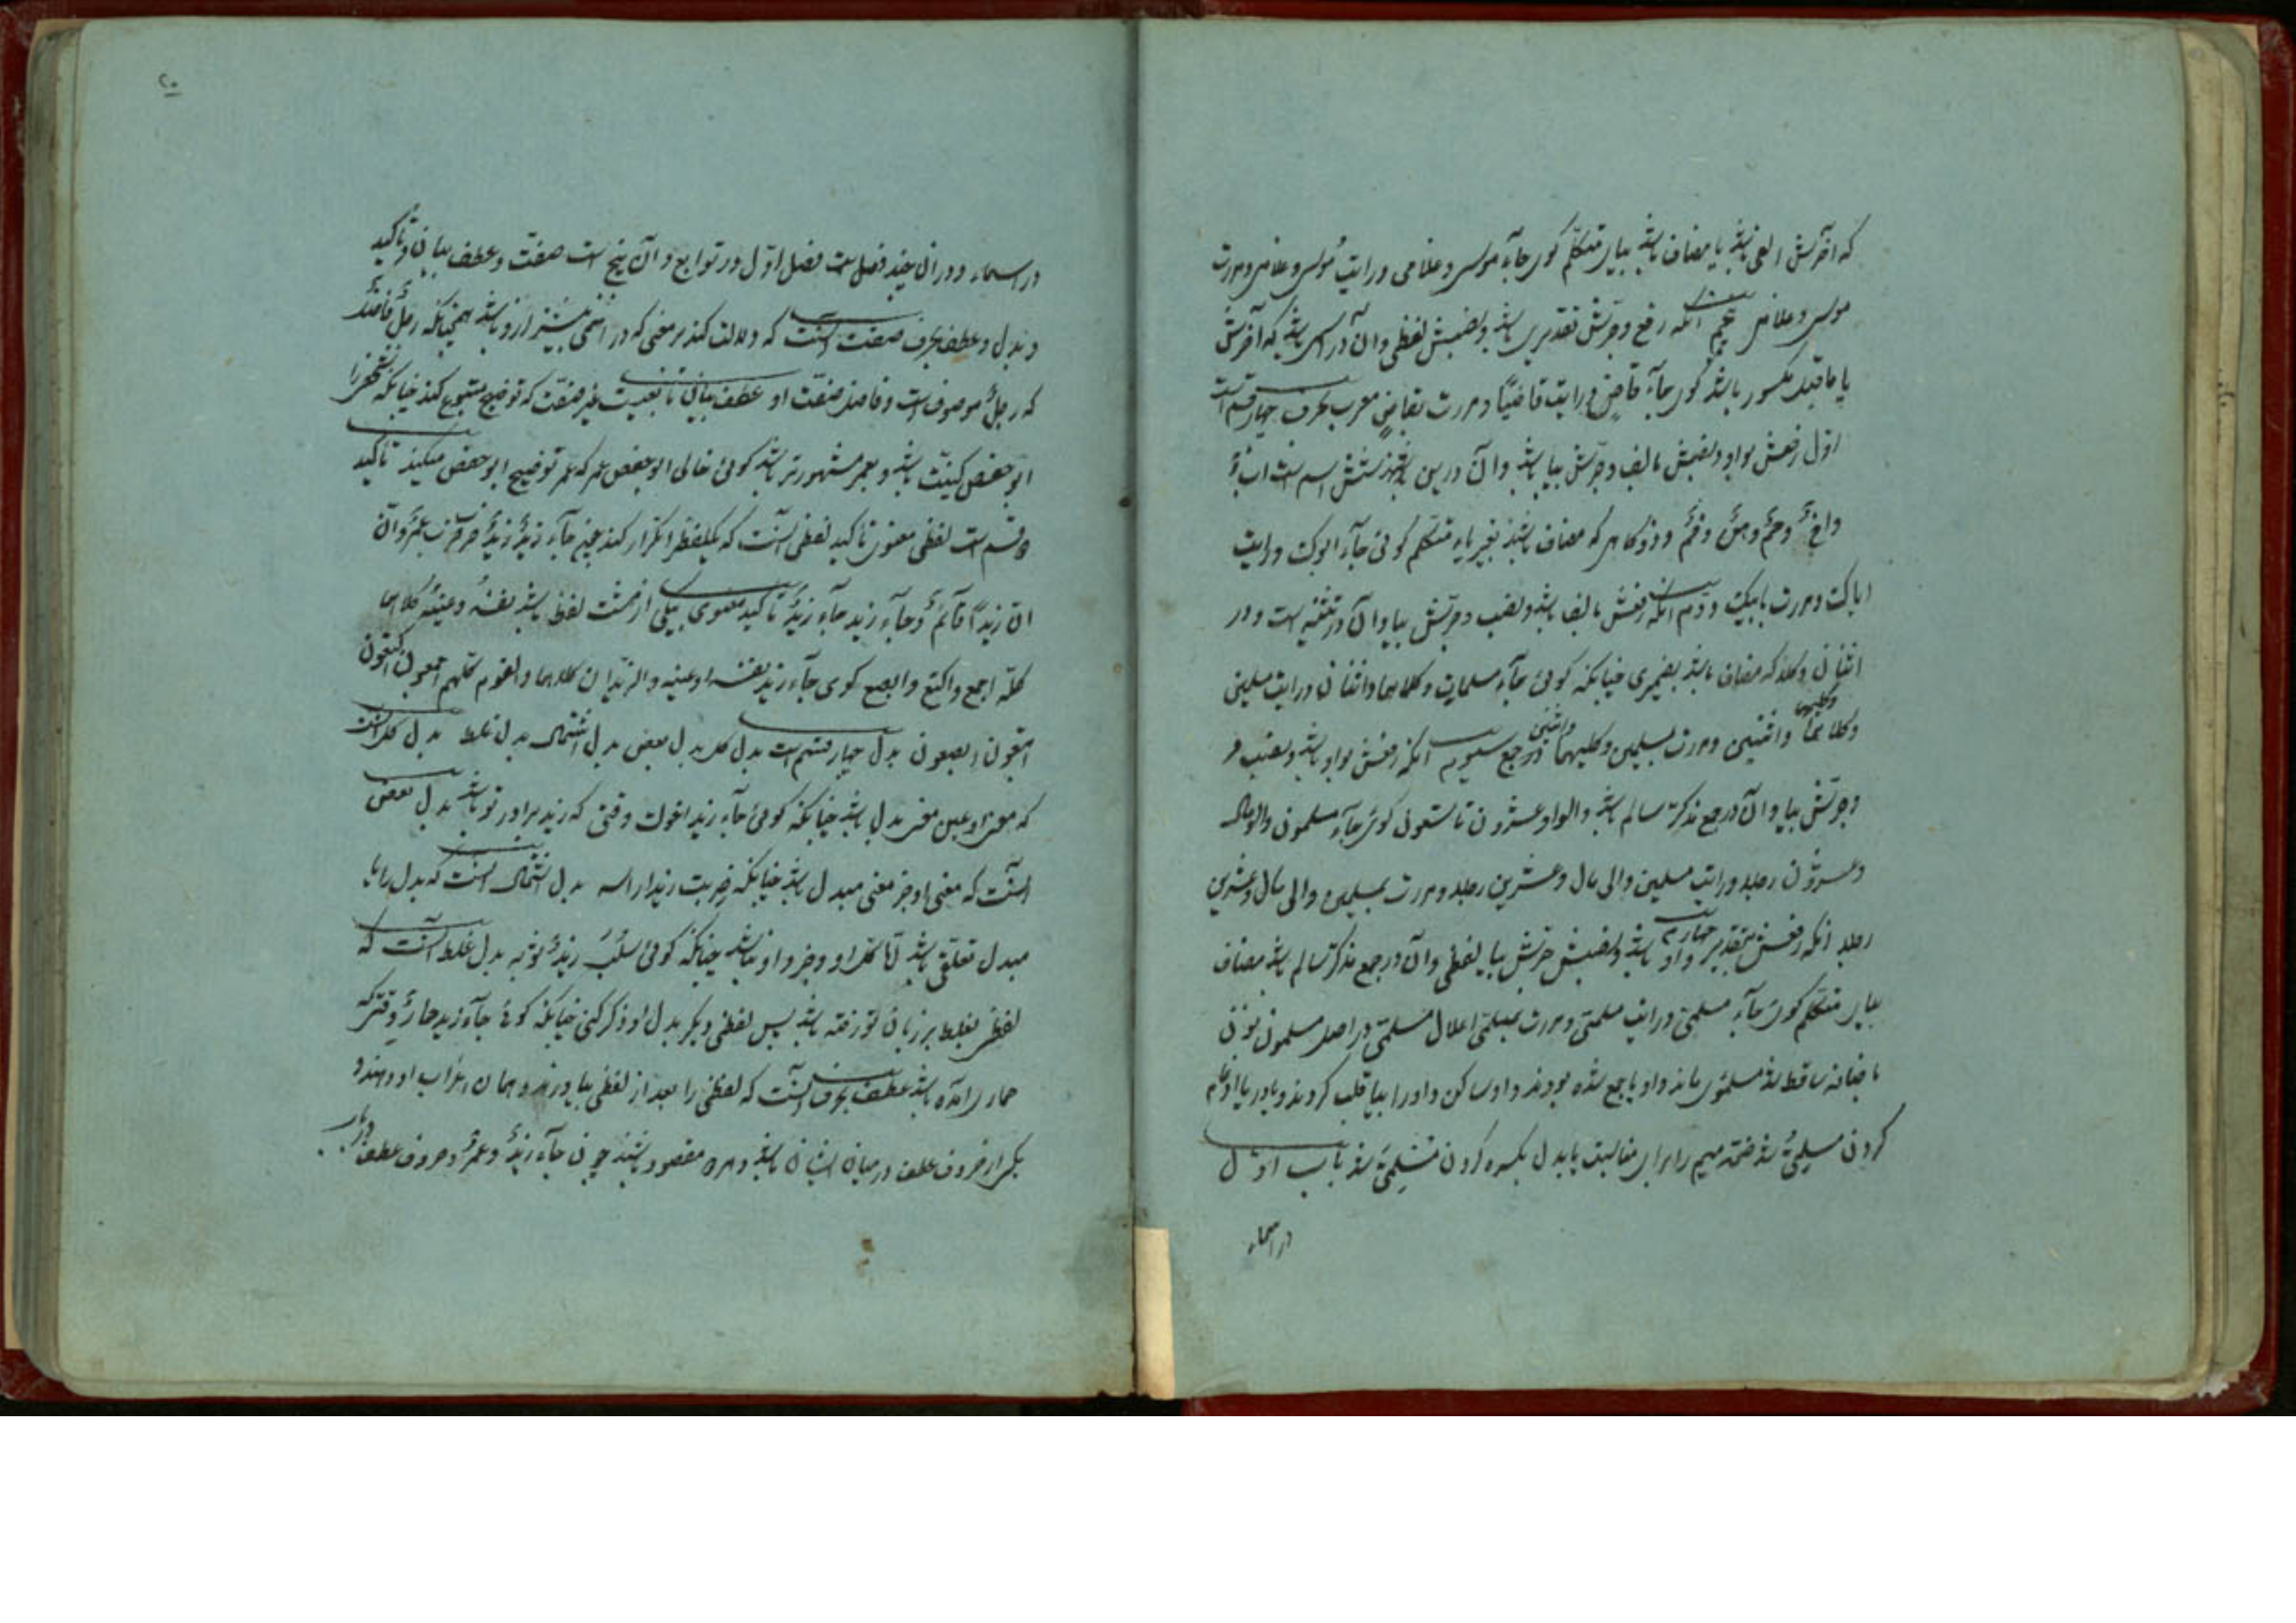 که آخرش الف باشد یا مضاف باشد بیای متکلم کوی جاء موسی و غلامی و رایت موسی و غلامی و مررت
موسی و غلامی پنجم آنکه رفع و جرش تقدیری باشد و نصبش لفظی و آن در اسمی باشد که آخرش
یا ماقبل مکسور باشد کوی جاء قاض و رایت قاضیًا و مررت بقاضٍ معرب بحرف چهار قسم است
اول رفعش بواو و نصبش بالف و جرش بیا باشد و آن درین شش اسم است ابٌ
واخٌ وحمٌ وهنٌ وفمٌ وذو کاهی که مضاف باشند بغیر یاء متکلم کوئی جاء ابوک ورایت
اباک ومررت بابیک ودوم آنکه رفعش بالف باشد ونصب وجرش بیا وآن در تثنیه است ودر
اثنان وکلا که مضاف باشد بضمیری چنانکه کوئی جاء مسلمان وکلاهما واثنان ورایت مسلمین
وکلیهما
واثنین ومررت بمسلمین وکلیهما واثنین سیوم آنکه رفعش بواو باشد ونصب و
وجرش بیا وآن در جمع مذکر سالم باشد والو وعشرون تا تسعون کوی جاء مسلمون والومال
وعشرون رجلا ورایت مسلمین والی مال وعشرین رجلا ومررت بمسلمین والی مال وعشرین
رجلا چهارم آنکه رفعش بتقدیر واو باشد ونصبش جرش بیا لفظی وآن در جمع مذکر سالم باشد مضاف
بیای متکلم کوی جاء مسلمی ورایت مسلمی ومررت بمسلمی اعلال مسلمی در اصل مسلمون نون
باضافه ساقط شد مسلموی ماند واو یا جمع شده بودند واو ساکن واورا بیا قلب کردند ویا در یا ادغام
کردن مسلمی شد ضمه میم را برای مناسبت یا بدل بکسره کردن مسلمی شد باب اول
در اسماء
۲۰
در اسماء ودر آن چند فصل است فصل اول در توابع وآن پنج است صفت وعطف بیان وتاکید
وبدل وعطف بحرف صفت آنست که دلالت کند بر معنی که در اسمی پیش ازو باشد همچنانکه رجلٌ فاضلٌ
که رجلٌ موصوف است وفاضل صفت او عطف بیان تابعیت غیر صفت که توضیح متبوع کند چنانکه شخصی را
ابو حفص کنیت باشد وبعمر مشهورتر باشد کوئی خالی ابو حفص عمر که عمر توضیح ابو حفص میکند تاکید
دو قسم است لفظی معنوی تاکید لفظی آنست که یک لفظ را تکرار کند چون جاء زیدٌ زیدٌ
ان زیدًا قائمٌ وجاء زید جاء زیدٌ تاکید معنوی یکی از هشت لفظ باشد نفسه وعینه وکلاهما
کله اجمع واکتع وابصع کوی جاء زید نفسه اوعینه والزیدان کلاهما والقوم کلهم اجمعون اکتعون
ابتعون ابصعون بدل چهار قسم است بدل کل بدل بعض بدل اشتمال بدل غلط بدل کل آنست
که معنی او عین معنی مبدل باشد چنانکه کوئی جاء زید اخوک وقتی که زید برادر تو باشد بدل بعض
آنست که معنی او جزء معنی مبدل باشد چنانکه ضربت زیدا راسه بدل اشتمال آنست که بدل را با
مبدل تعلقی باشد اما کل او وجزو او نباشد چنانکه کوئی سُلِبَ زیدٌ ثوبه بدل غلط آنست که
لفظی بغلط بر زبان تو رفته باشد پس لفظی دیگر بدل او ذکر کنی چنانکه کوئی جاء زید حمارٌ وقتی که
حمار آمده باشد عطف بحرف آنست که لفظی را بعد از لفظی بیاورند وهمان اعراب او دهند و
یکی از حروف عطف در میان ایشان باشد وهر دو مقصود باشند چون جاء زیدٌ وعمرٌو وحروف عطف